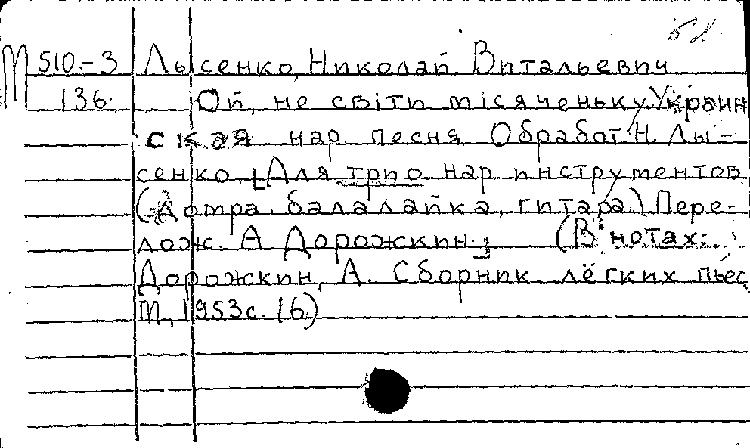 М 510-3 Лысенко, Николай Витальевич
136. Ой, не свiти мiсяченьку. Украин
ская нар песня. Обработ. Н. Лы-
сенко. [Для трио нар инструментов
(Домра, балалайка, гитара) Пере-
лож. А Дорожкин.] (В нотах:
Дорожкин, А. Сборник лёгких пьес
М., 1953 с. 16)